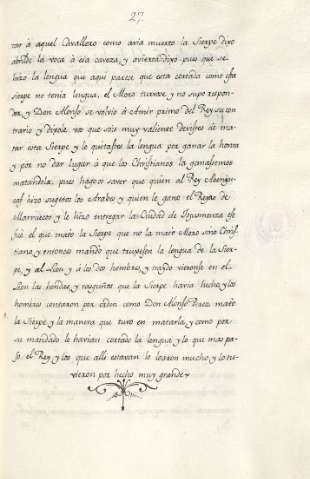 27
tar á aquel Cavallero como avia muerto la Sierpe dixo
abridle la voca á esa caveza, y avierta dixo pues que se
hizo la lengua que aqui parece que esta cortada como esta
sierpe no tenia lengua, el Moro turvose y no supo respon-
der, y Don Alonso se volvio á Amir primo del Rey su con
trario y dixole vos que sois muy valiente devistes de ma
tar esta Sierpe y le quitastes la lengua por ganar la honra
y por no dar lugar á que los Christianos la ganasemos
matandola, pues haveys de saver que quien al Rey
hizo sugetos los Arabes y quien le gano el Reyno de
Marruecos y le hizo entregar la Ciudad de
fue el que mato la Sierpe que no la mato Moro sino Chris
tiano, y entonces mando que truxesen la lengua de la Sier-
pe, y al Leon y á los dos hombres, y quando vieronse en el
Leon las heridas y rasguños que la Sierpe havia hecho y los
hombres contaron por orden como Don Alonso Perez mato
la Sierpe y la manera que tuvo en matarla, y como por
su mandado le havian cortado la lengua y lo que mas pa-
so. el Rey y los que alli estavan lo loaron mucho, y lo tu-
vieron por hecho muy grande